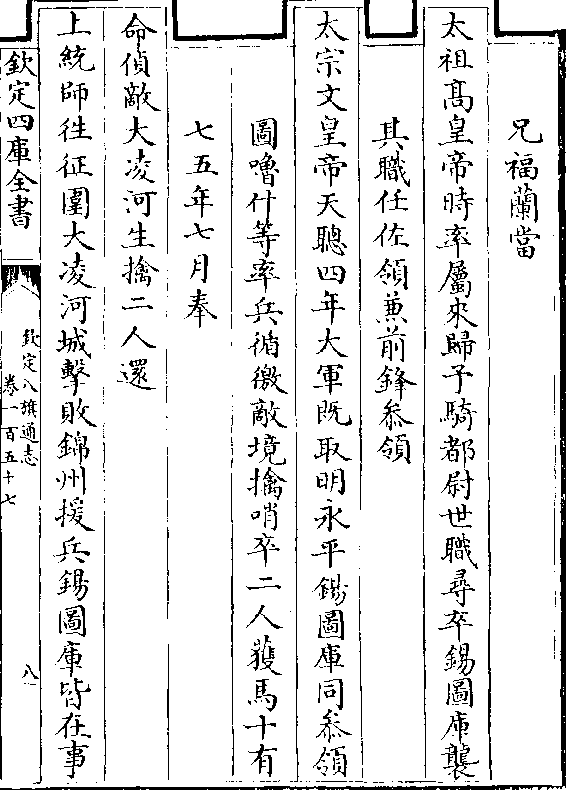 兄福蘭當
太祖髙皇帝時率屬來歸予騎都尉世職尋卒錫圖庫襲
其職任佐領兼前鋒叅領
太宗文皇帝天聰四年大軍既取明永平錫圖庫同叅領
圖嚕什等率兵循徼敵境擒哨卒二人獲馬十有
七五年七月奉
命偵敵大凌河生擒二人還
上統師徃征圍大凌河城擊敗錦州援兵錫圖庫皆在事
欽定四庫全書
欽定八旗通志
卷一百五十七
八